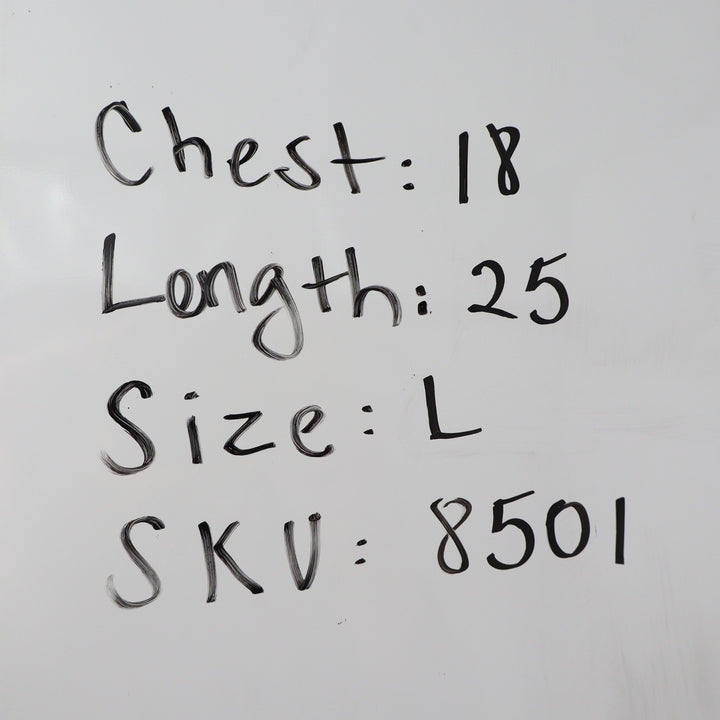 Chest: 18
Length: 25
Size: L
SKU: 8501